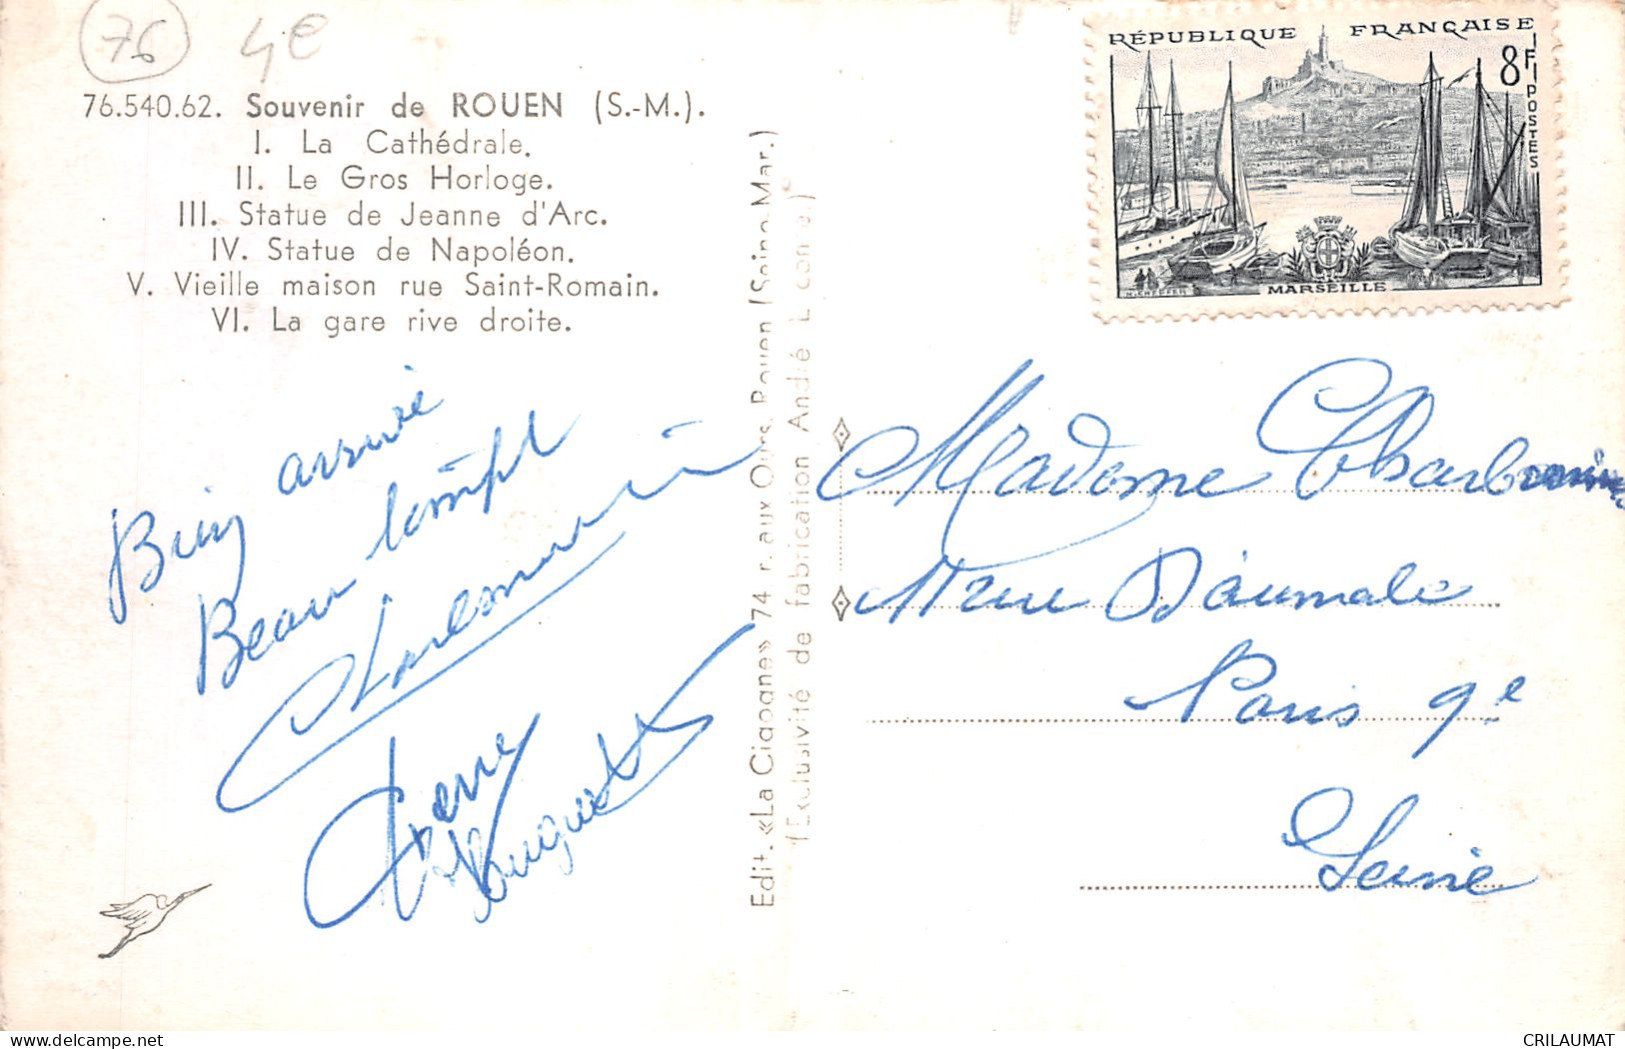 76
4€
76.540.62. Souvenir de ROUEN (S.-M.).
I. La Cathédrale.
II. Le Gros Horloge.
III. Statue de Jeanne d'Arc.
IV. Statue de Napoléon.
V. Vieille maison rue Saint-Romain.
VI. La gare rive droite.
Bien arrivé
Beau temps
Pierre
Huguette
Edit. «La Cigogne» 74 r. aux Ours, Rouen (Seine-Mar.)
(Exclusivité de fabrication André Leconte)
RÉPUBLIQUE FRANÇAISE
8F
POSTES
MARSEILLE
Madame
rue D'aumale
Paris 9e
Seine
CRILAUMAT